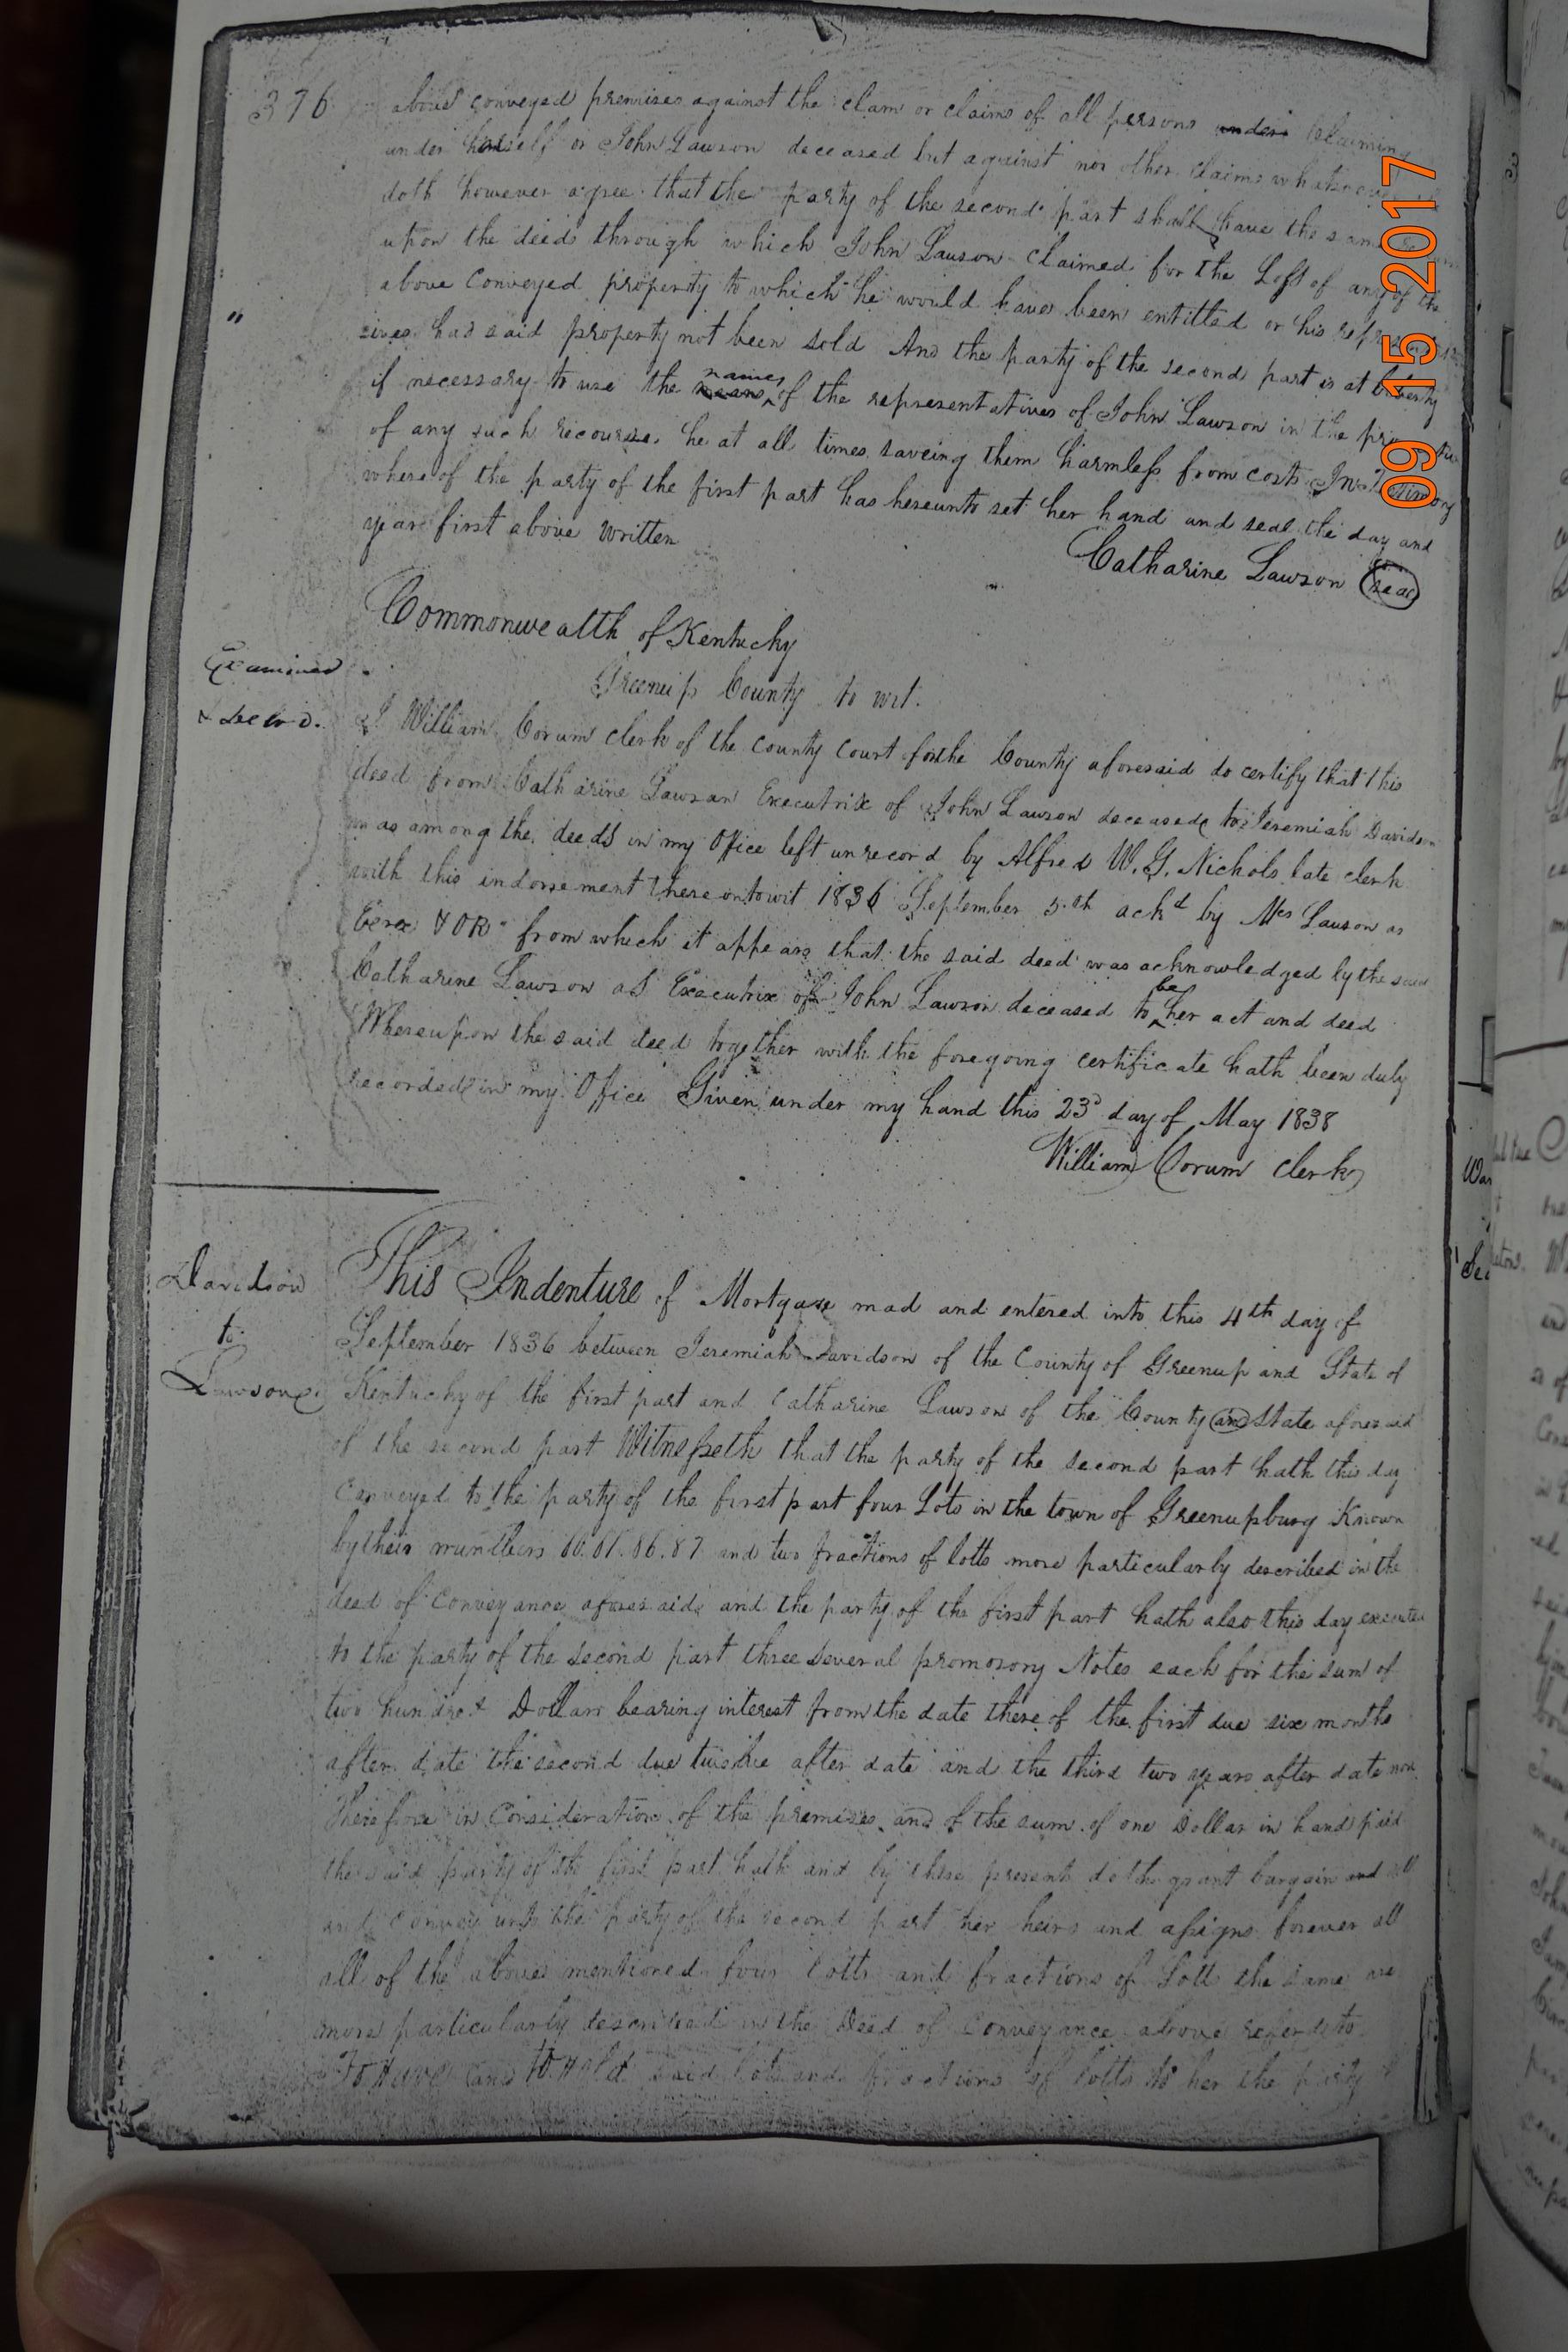 376
above conveyed premises against the clam or claims of all persons under claiming
under herself or John Lawson deceased but against nor other claims whatsoever
doth however agree that the party of the second part shall have the same
upon the deeds through which John Lawson claimed for the Loss of any of the
above conveyed property to which he would have been entitled or his
had said property not been sold And the party of the second part is at liberty
if necessary to use the means names of the representatives of John Lawson in the
of any such recourse he at all times saveing them harmless from costs In Testimony
whereof the party of the first part has hereunto set her hand and seal the day and
year first above written
Catharine Lawson seal
Commonwealth of Kentucky
Greenup County to wit.
Examined
I William Corum clerk of the county court for the County aforesaid do certify that this
deed from Catharine Lawson Executrix of John Lawson deceased to Jeremiah Davidson
was among the deeds in my Office left unrecord by Alfred W. G. Nichols late clerk
with this indorsement thereon towit 1836 September 5th ackd by Mrs Lawson as
from which it appears that the said deed was acknowledged by the said
Catharine Lawson as Executrix of John Lawson deceased to be her act and deed
Whereupon the said deed together with the foregoing certificate hath been duly
recorded in my Office Given under my hand this 23d day of May 1838
William Corum clerk
Davidson
to
Lawson
This Indenture of Mortgage mad and entered into this 4th day of
September 1836 between Jeremiah Davidson of the County of Greenup and State of
Kentucky of the first part and Catharine Lawson of the County and State aforesaid
of the second part Witnesseth that the party of the second part hath this day
conveyed to the party of the first part four Lots in the town of Greenupburg Known
by their numbers 86. 87 and two fractions of lotts more particularly described in the
deed of conveyance aforesaid and the party of the first part hath also this day executed
to the party of the second part three several promosory Notes each for the sum of
two hundred Dollars bearing interest from the date there of the first due six months
after date the second due twelve after date and the third two years after date now
Therefore in Consideration of the premises and of the sum of one Dollar in hand paid
the said party of the first part hath and by these presents doth grant bargain and sell
and convey unto the party of the second part her heirs and assigns forever all
all of the above mentioned four Lotts and fractions of Lott the same are
more particularly described in the Deed of Conveyance above referd to
To Have and to Hold said Lots and fractions of lotts to her the party
09 15 2017